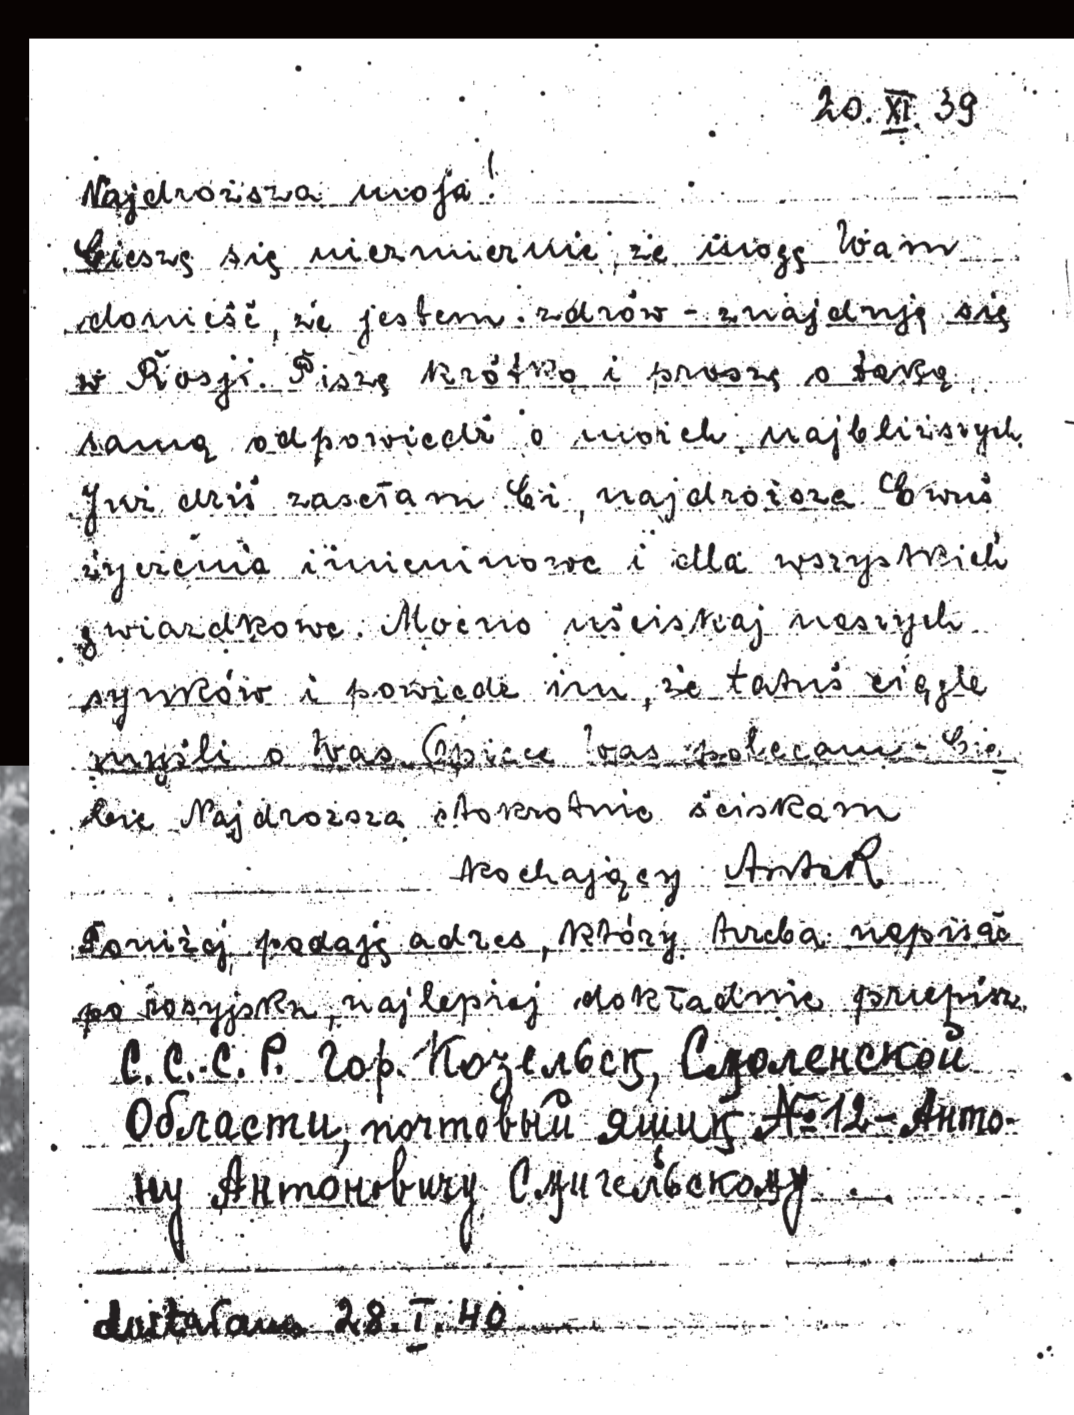 20. XI. 39
Najdroższa moja!
Cieszę się niezmiernie, że mogę Wam
donieść, że jestem zdrów - znajduję się
w Rosji. Piszę krótko i proszę o taką
samą odpowiedź o moich najbliższych.
Już dziś zasełam Ci, najdroższa Ewuś
życzenia imieninowe i dla wszystkich
gwiazdkowe. Mocno uściskaj naszych
synków i powiedz im, że tatuś ciągle
myśli o Was. Opiece Was polecam - Cie
bie Najdroższa stokrotnie ściskam
kochający Antek
Poniżej podaję adres, który trzeba napisać
po rosyjsku, najlepiej dokładnie przepisz
С.С.С.Р. Гор. Козельск, Смоленской
Области, почтовый ящик №12 - Анто-
ну Антоновичу Смигельскому
dostałam 28. I. 40